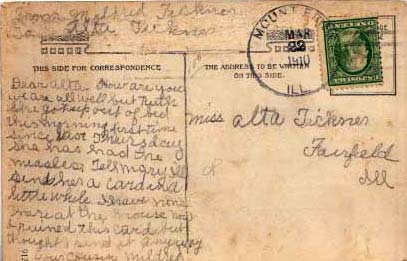 From Mildred Ticknor
To Alta Ticknor
THIS SIDE FOR CORRESPONDENCE
THE ADDRESS TO BE WRITTEN
ON THIS SIDE.
MOUNT
MAR
22
1910
ILL.
Dear Alta How are you
we are all well but Ruth
she got up out of bed
this morning first time
since last Thursday
she has had the
measles. Tell Mary Ill
send her a card in a
little while I have none
here at the house now
I ruined this card but
thought I send it anyway
your cousin Mildred
Miss Alta Ticknor
Fairfield
Ill